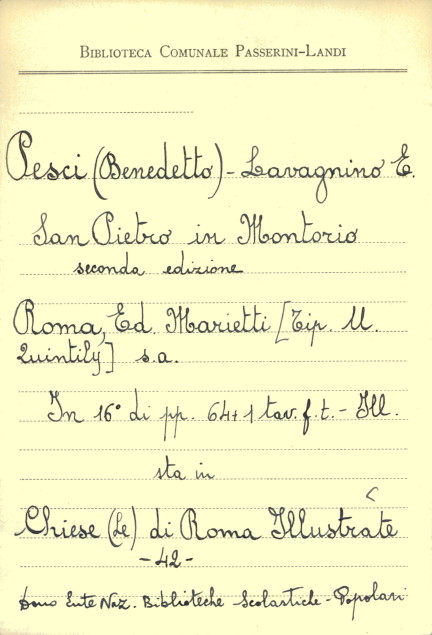 BIBLIOTECA COMUNALE PASSERINI-LANDI
Pesci (Benedetto) - Lavagnino E.
San Pietro in Montorio
seconda edizione
Roma, Ed. Marietti [Tip. U.
Quintily] s.a.
In 16° di pp. 64+1 tav. f. t. - Ill.
sta in
Chiese (Le) di Roma Illustrate
- 42 -
Dono Ente Naz. Biblioteche Scolastiche - Popolari